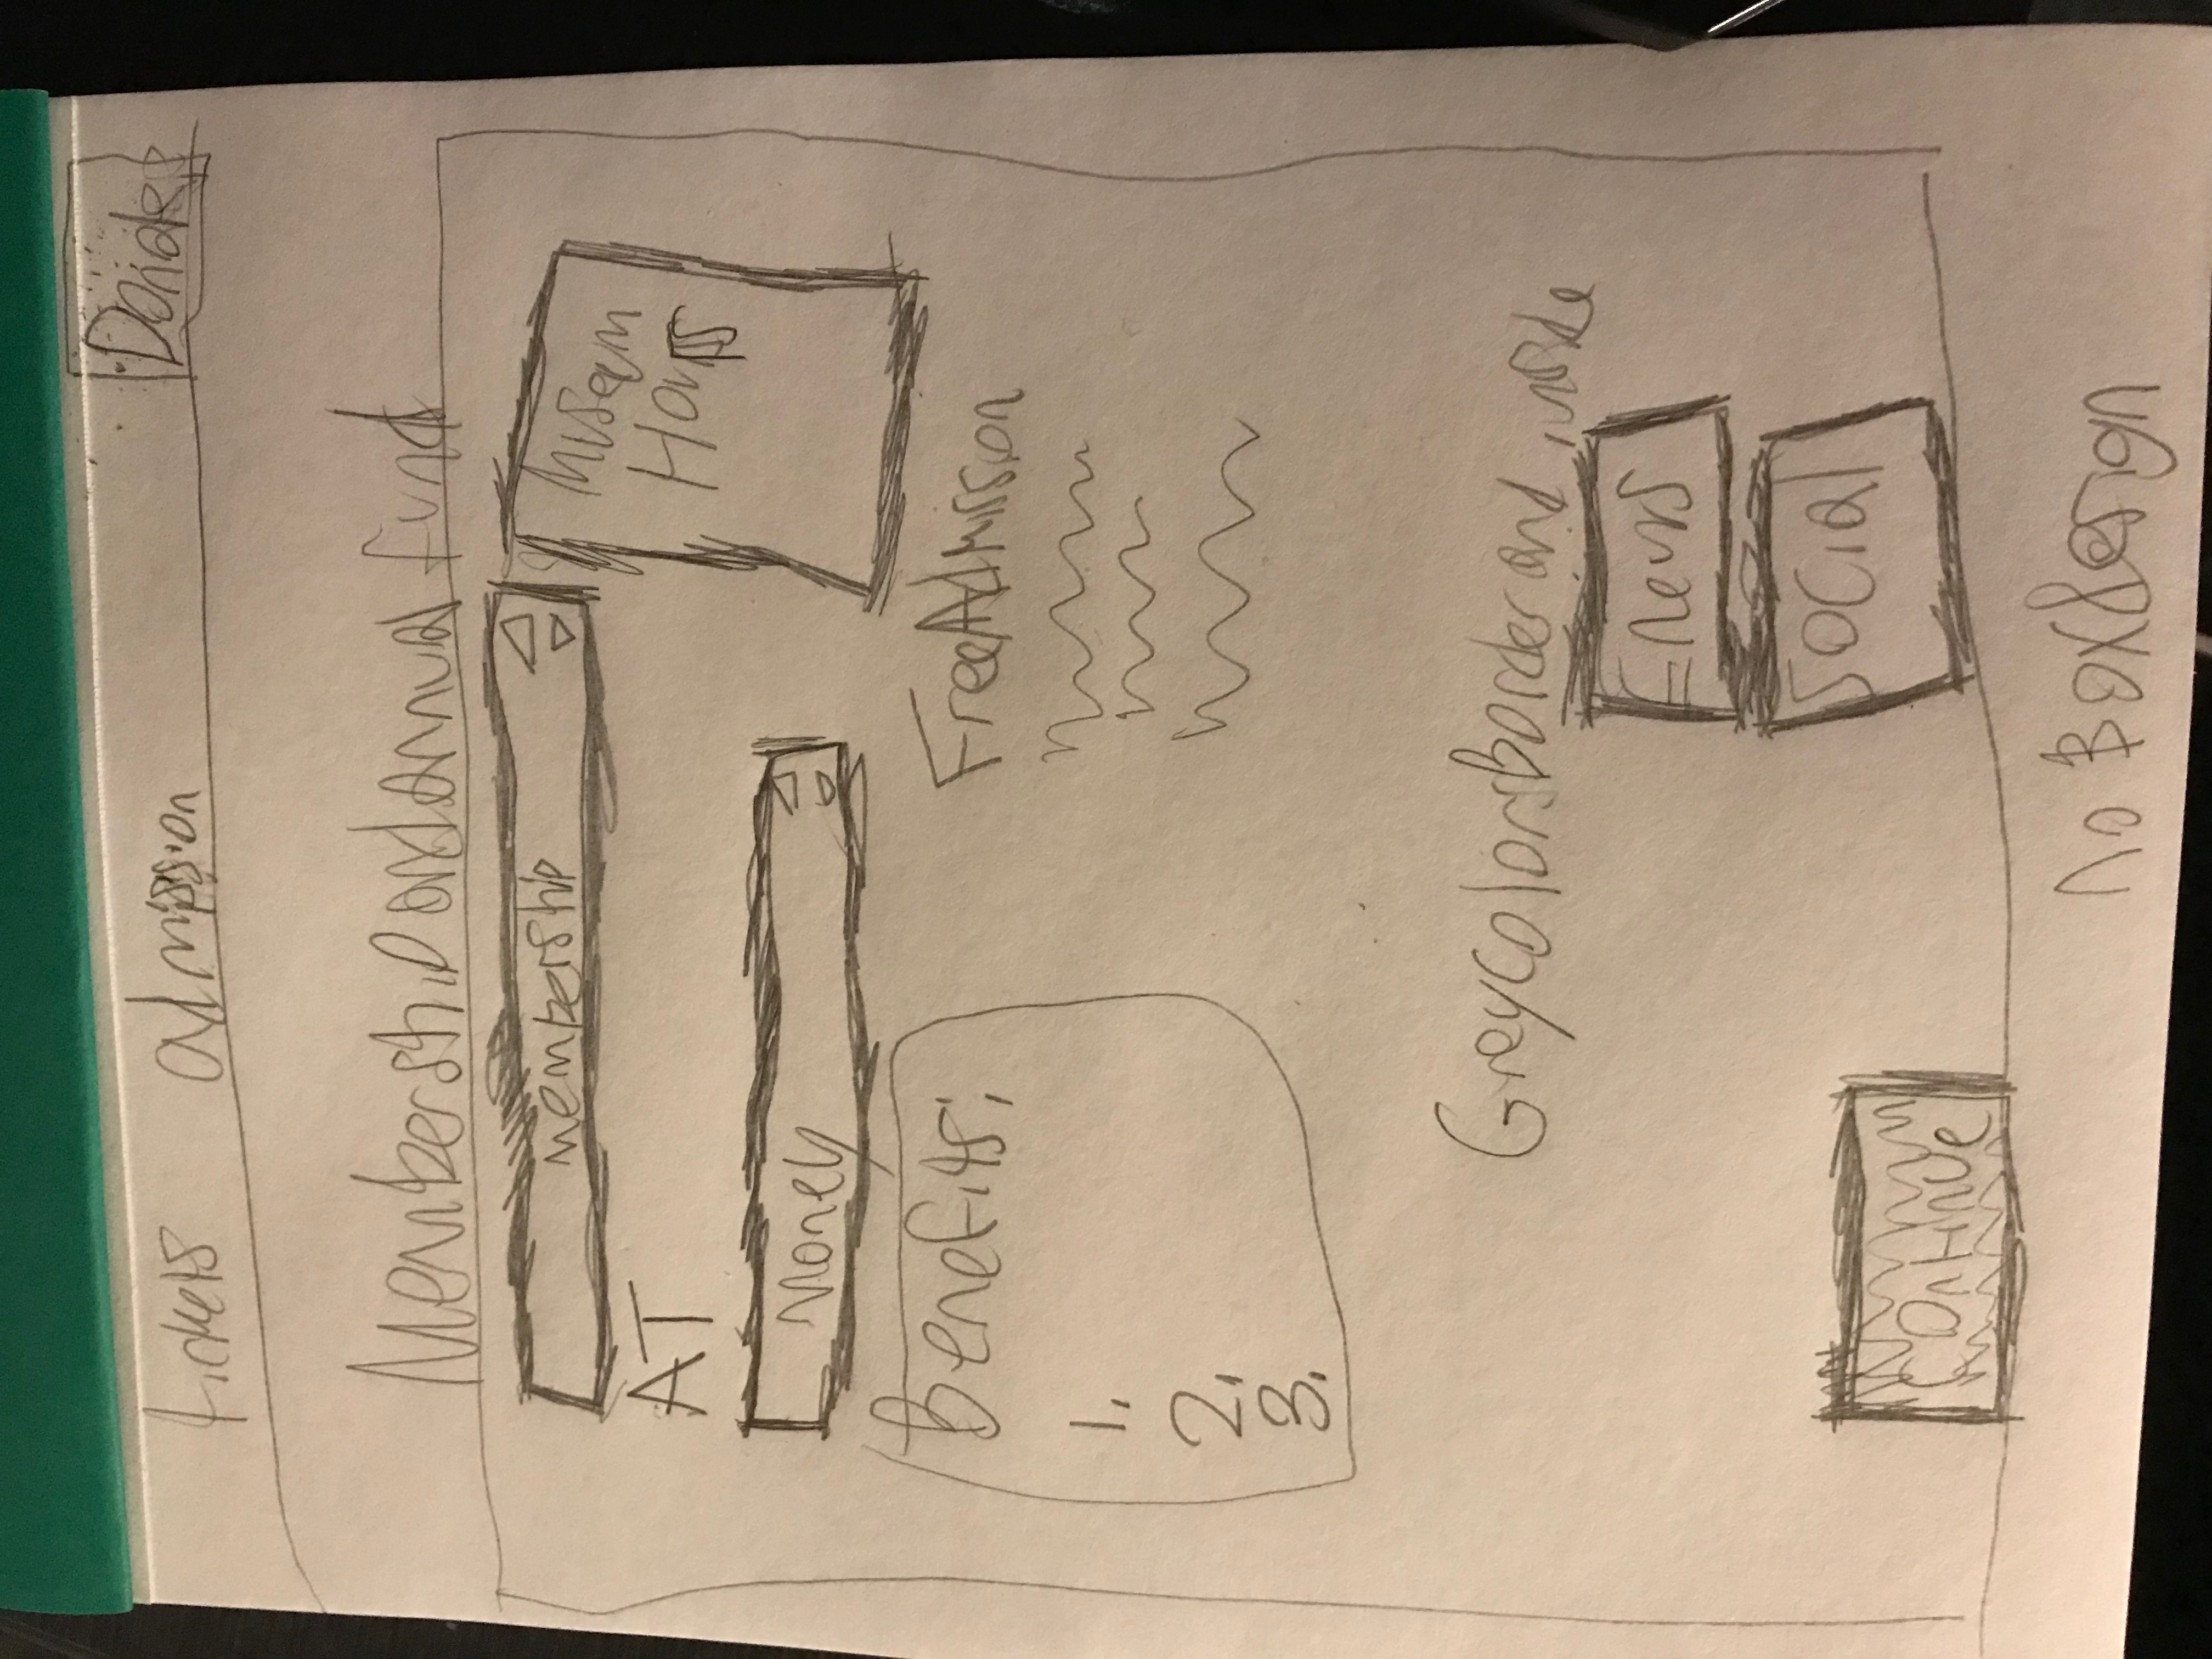 tickets admission Donate
Membership and annual fund
membership
Museum
Hours
AT
Money
Benefits:
1.
2.
3.
Free Admission
Grey colors Border and inside
Enews
Social
Continue
no Box design